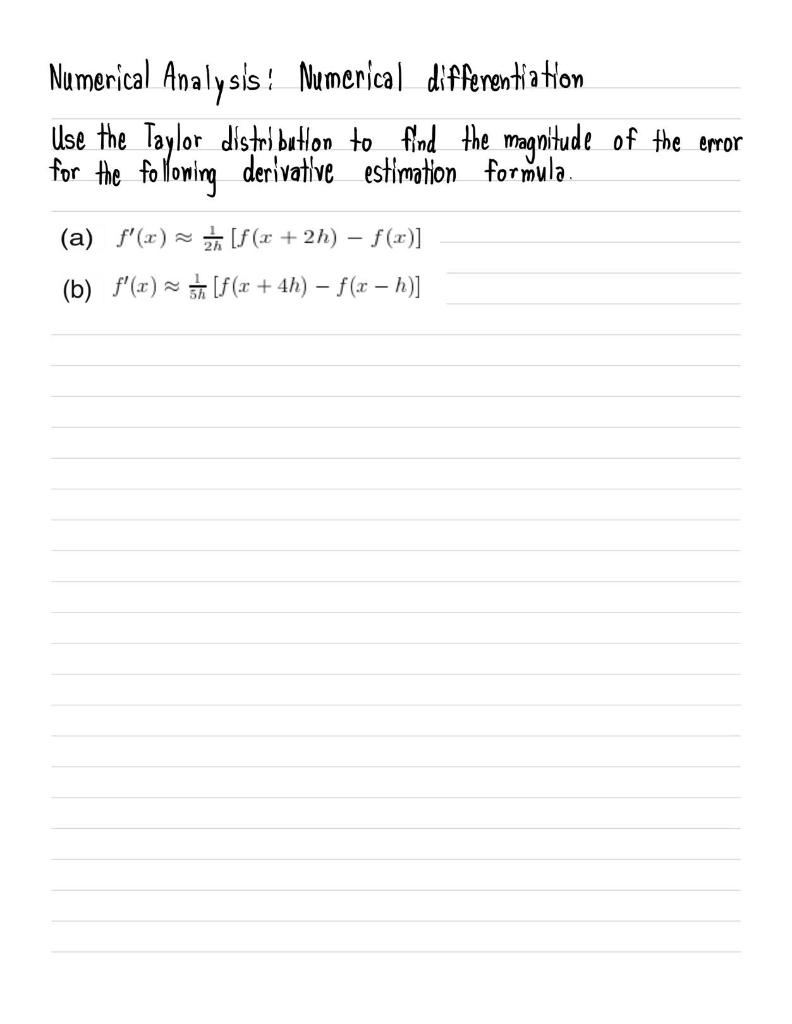 Numerical Analysis: Numerical differentiation
Use the Taylor distribution to find the magnitude of the error
for the following derivative estimation formula.
(a) f′(x) ≈ 1/2h [f(x + 2h) − f(x)]
(b) f′(x) ≈ 1/5h [f(x + 4h) − f(x − h)]